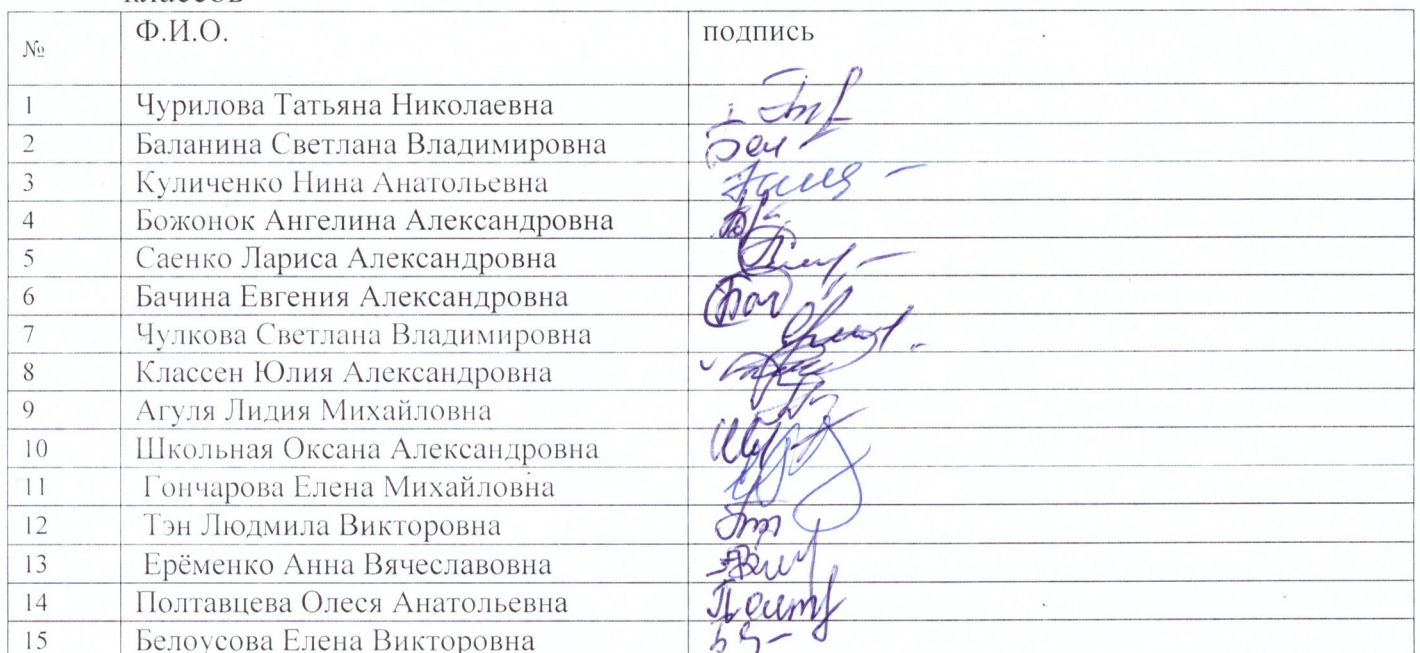 классов
№ Ф.И.О. подпись
1 Чурилова Татьяна Николаевна
2 Баланина Светлана Владимировна
3 Куличенко Нина Анатольевна
4 Божонок Ангелина Александровна
5 Саенко Лариса Александровна
6 Бачина Евгения Александровна
7 Чулкова Светлана Владимировна
8 Классен Юлия Александровна
9 Агуля Лидия Михайловна
10 Школьная Оксана Александровна
11 Гончарова Елена Михайловна
12 Тэн Людмила Викторовна
13 Ерёменко Анна Вячеславовна
14 Полтавцева Олеся Анатольевна
15 Белоусова Елена Викторовна